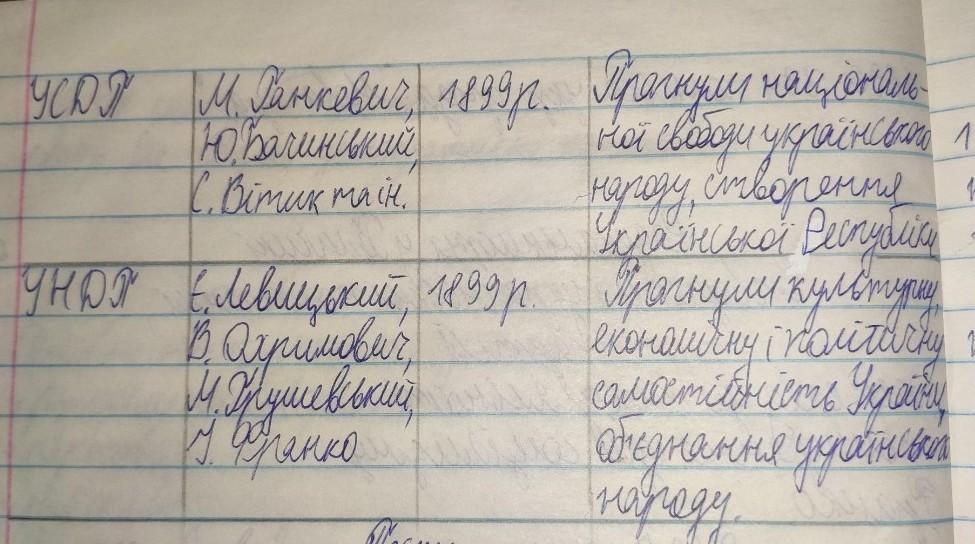 УСДП М. Ганкевич, 1899р. Прагнули національ-
Ю. Бачинський, ної свободи українського
С. Вітик та ін. народу, створення
Української Республіки
УНДП Є. Левицький, 1899р. Прагнули культурну,
В. Охримович, економічну і політичну
М. Грушевський, самостійність України,
І. Франко об'єднання українського
народу.